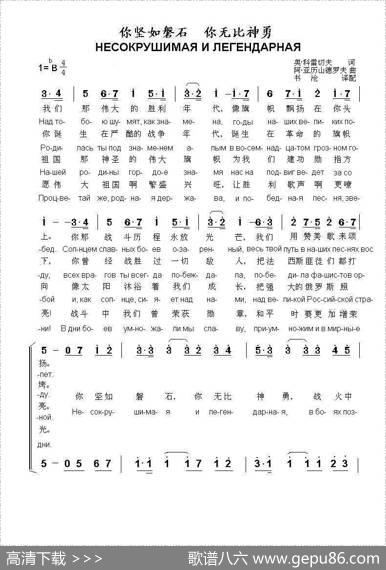 你坚如磐石 你无比神勇
НЕСОКРУШИМАЯ И ЛЕГЕНДАРНАЯ
1=ᵇB 4/4
奥·科雷切夫 词
阿·亚历山德罗夫 曲
书 沧 译配
3·4 5 6·7 i 5·1 3·4 5 6·7 i 3·4
我们 那 伟大 的 胜利 年 代, 像旗 帜 飘扬 在 你头
Над тобою шумят, как знамёна, годы наших великих по-
你诞 生 在严 酷的 战争 年 代, 诞生 在 革命 的 旗帜
Родилась ты под знаменем алым в восемнадцатом грозном го-
祖国 那 神圣 的 伟大 旗 帜 为我 们 建功 勋 指方
Нашей родины гордое знамя нас на подвиг ведёт за со-
愿伟 大 祖国 啊 繁盛 兴 旺, 让胜 利 歌声 啊 更嘹
Процветай же, родная держава, и победная песня, зве-
上, 你那 战斗 历程 永放 光 芒, 我们 用 赞美 歌 来颂
-бед. Солнцем славных боёв озарённый, весь твой путь в наших песнях вос-
下, 你曾 经战 胜过 一切 敌 人, 把法 西斯 匪徒 们 都打
-ду, всех врагов ты всегда побеждала, победила фашистов ор-
向 像太 阳 沐浴 着 我们 成 长, 把强 大的 俄罗 斯 照
-бой и, как солнце, сияет над нами, над великой Российской стра-
亮! 战斗 中 我们 曾 荣获 勋 章, 和平 时 要更 加 增荣
-ни! В дни боёв умножали мы славу, приумножим и в мирные
扬。
-пет.
垮。
-ду.
亮。
-ной.
光。
дни.
你 坚 如 磐 石, 你 无 比 神 勇, 战 火 中
Несокрушимая и легендарная, в боях поз-
高清下载 >>>
歌谱八六 www.gepu86.com